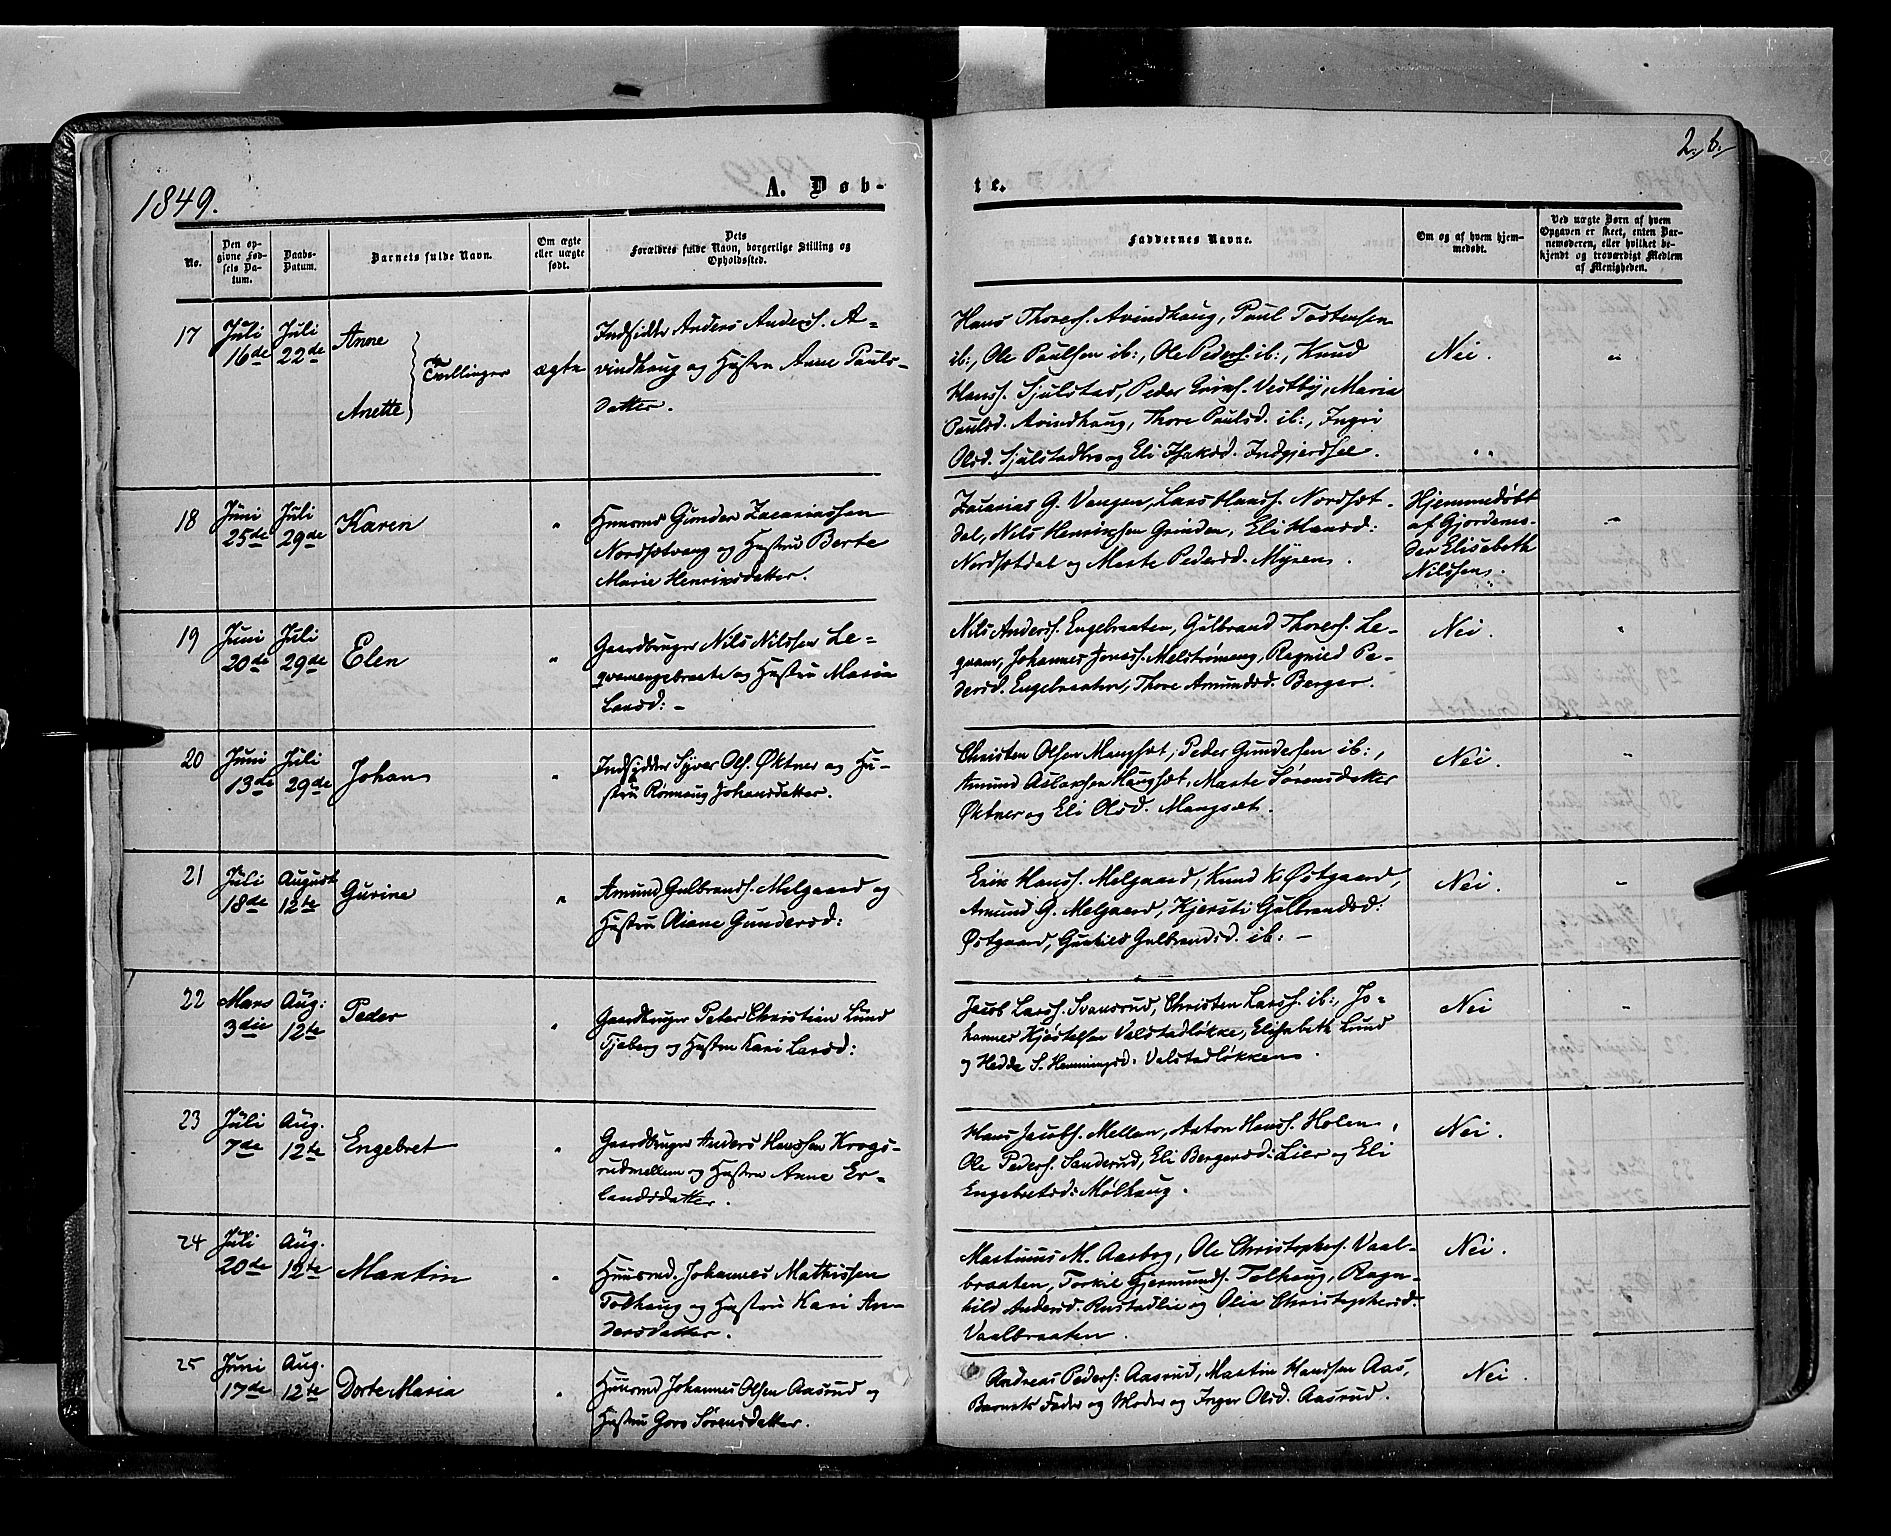 1849.
A. Døb-
te.
2. b.
No.
Den op-
givne Fød-
sels Da-
tum.
Daabs-
Datum.
Barnets fulde Navn.
Om ægte
eller uægte
født.
Dets
Forældres fulde Navn, borgerlige Stilling og
Opholdssted.
Faddernes Navne.
Om og af hvem hjem-
medøbt.
Ved uægte Børn af hvem
Opgaven er skeet, enten Bar-
nemoderen, eller hvilket be-
kjendt og troværdigt Medlem
af Menigheden.
17
Juli
16de
Juli
22de
Anne
Anette
Tvillinger
ægte
Indsidder Anders Anders. A-
vindhaug og Hustru Anne Pauls-
datter.
Hans Thores. Avindhaug, Paul Tostensen
ib:, Ole Paulsen ib:, Ole Peders. ib:, Knud
Hanss. Sjulstad, Peder Vestby, Maria
Paulsd. Avindhaug, Thore Paulsd. ib:, Ingri
Olsd. Sjulstadbro og Eli Isaksd.
Nei.
"
18
Juni
25de
Juli
29de
Karen
"
Huusmd Gunder Zacariassen
Nordsætvang og Hustru Berte
Marie Henriksdatter.
Zacarias G. Vangen, Lars Hanss. Nordsæt-
dal, Nils Henriksen Grinden, Eli Hansd:
Nordsætdal og Marte Pedersd. Myren.
Hjemmedøbt
af Gjordemo-
der Elisabeth
Nilssen.
"
19
Juni
20de
Juli
29de
Elen
"
Gaardbruger Nils Nilssen Le-
qvamengebraate og Hustru Maria
Larsd: -
Nils Anderss. Engebraaten, Gulbrand Thores. Le-
qvam, Johannes Jonass. Melstrømeng, Ragnild Pe-
dersd. Engebraaten, Thore Amundsd. Berger.
Nei.
"
20
Juni
13de
Juli
29de
Johan
"
Indsidder Syver Ols. Øktner og Hu-
stru Rønnaug Johansdatter.
Christen Olsen Mangsæt, Peder Gundersen ib:,
Amund Aslaksen Haugsæt, Marte Sørensdatter
Øktner og Eli Olsd. Mangsæt.
Nei.
"
21
Juli
18de
August
12te
Gurine
"
Amund Gulbrands. Melgaard og
Hustru Oliane Gundersd:
Erik Hanss. Melgaard, Knud K. Østgaard,
Amund G. Melgaard, Kjersti Gulbrandsd:
Østgaard, Gunild Gulbrandsd. ib: -
Nei.
"
22
Mars
3die
Aug:
12te
Peder
"
Gaardbruger Peter Christian Lund
Tjøberg og Hustru Kari Larsd:
Jacob Larss. Svansrud, Christen Larss. ib:, Jo-
hannes Kjøstelsen Valstadløkke, Elisabeth Lund
og Hedde S. Hemmingsd: Valstadløkken.
Nei
"
23
Juli
7de
Aug.
12te
Engebret
"
Gaardbruger Anders Hanssen Krogs-
rudmellem og Hustru Anne Er-
landsdatter.
Hans Jacobs. Mellem, Anton Hanss. Holen,
Ole Peders. Sanderud, Eli Bergersd: Lier og Eli
Engebretsd: Mølhaug.
Nei.
24
Juli
20de
Aug.
12te
Martin
"
Huusmd. Johannes Mathissen
Tolhaug og Hustru Kari An-
dersdatter.
Martinus M. Aasbog, Ole Christophers. Vaal-
braaten, Torkil Gjermunds. Tolhaug, Ragn-
hild Andersd. Rustadlie og Olia Christophersd.
Vaalbraaten.
Nei.
25
Juni
17de
Aug.
12te
Dorte Maria
"
Huusmd Johannes Olsen Aasrud og
Hustru Goro Sørensdatter.
Andreas Peders: Aasrud, Martin Hanssen Aas,
Barnets Fader og Moder og Inger Olsd. Aasrud.
Nei.